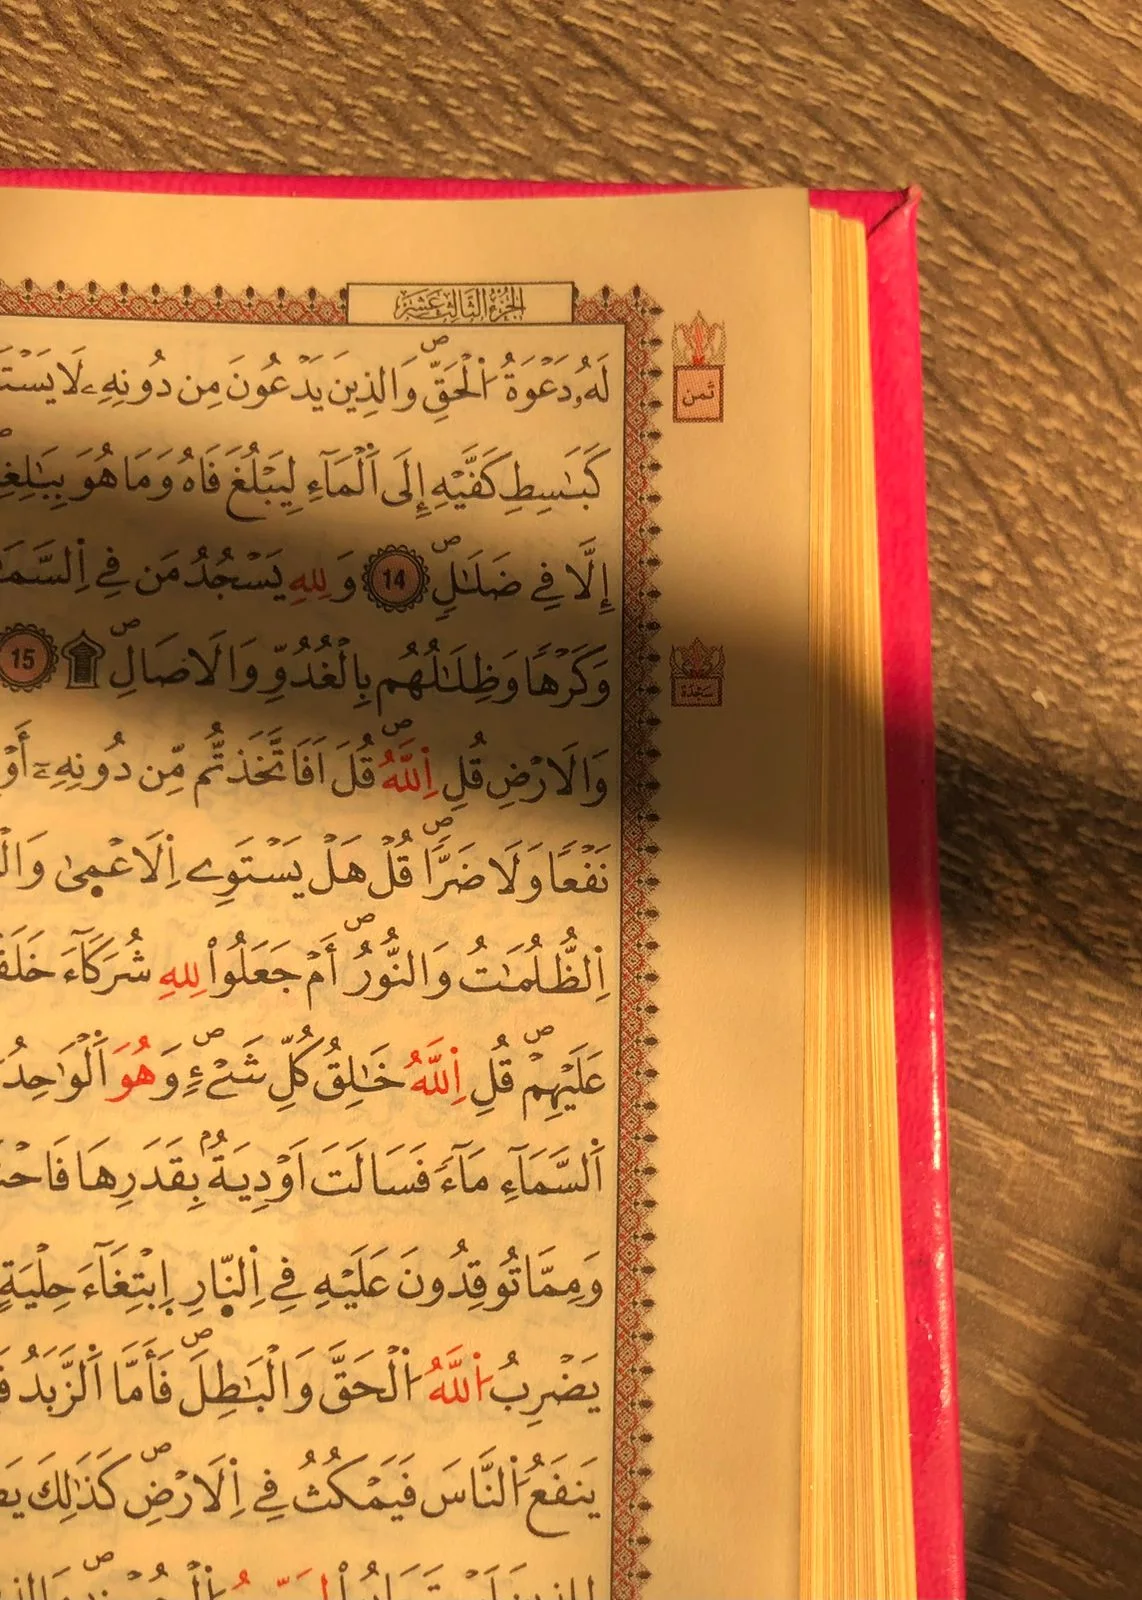 الجزء الثالث عشر
لَهُۥ دَعْوَةُ اُ۬لْحَقِّۖ وَالذِينَ يَدْعُونَ مِن دُونِهِۦ لَا يَسْتَ
ثمن
كَبَٰسِطِ كَفَّيْهِ إِلَى اَ۬لْمَآءِ لِيَبْلُغَ فَاهُ وَمَا هُوَ بِبَٰلِغِ
إِلَّا فِے ضَلَٰلٖۖ 14 وَلِلهِ يَسْجُدُ مَن فِے اِ۬لسَّمَ
وَكَرْهاٗ وَظِلَٰلُهُم بِالْغُدُوِّ وَالَاصَالِۖ ۩ 15
سجدة
وَالَارْضِ قُلِ اِ۬للَّهُۖ قُلَ اَفَاتَّخَذتُّم مِّن دُونِهِۦٓ أَوْ
نَفْعاٗ وَلَا ضَرّاٗۖ قُلْ هَلْ يَسْتَوِے اِ۬لَاعْمۭيٰ وَالْ
اِ۬لظُّلُمَٰتُ وَالنُّورُۖ أَمْ جَعَلُواْ لِلهِ شُرَكَآءَ خَلَقُ
عَلَيْهِمْۖ قُلِ اِ۬للَّهُ خَٰلِقُ كُلِّ شَےْءٖۖ وَهُوَ اَ۬لْوَٰحِدُ
اَ۬لسَّمَآءِ مَآءٗ فَسَالَتَ اَوْدِيَةُۢ بِقَدَرِهَا فَاحْتَ
وَمِمَّا تُوقِدُونَ عَلَيْهِ فِے اِ۬لنّ۪ارِ اِ۪بْتِغَآءَ حِلْيَةٍ
يَضْرِبُ اُ۬للَّهُ اُ۬لْحَقَّ وَالْبَٰطِلَۖ فَأَمَّا اَ۬لزَّبَدُ فَ
يَنفَعُ اُ۬لنَّاسَ فَيَمْكُثُ فِے اِ۬لَارْضِۖ كَذَٰلِكَ يَضْ